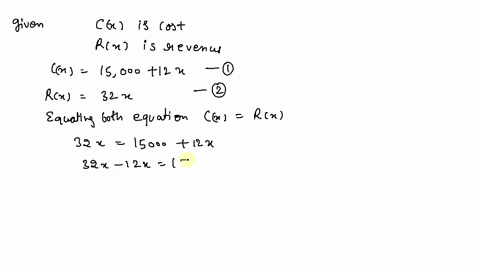 given C(x) is cost
R(x) is revenus
C(x) = 15,000 + 12x — ①
R(x) = 32x — ②
Equating both equation C(x) = R(x)
32x = 15000 + 12x
32x - 12x = (